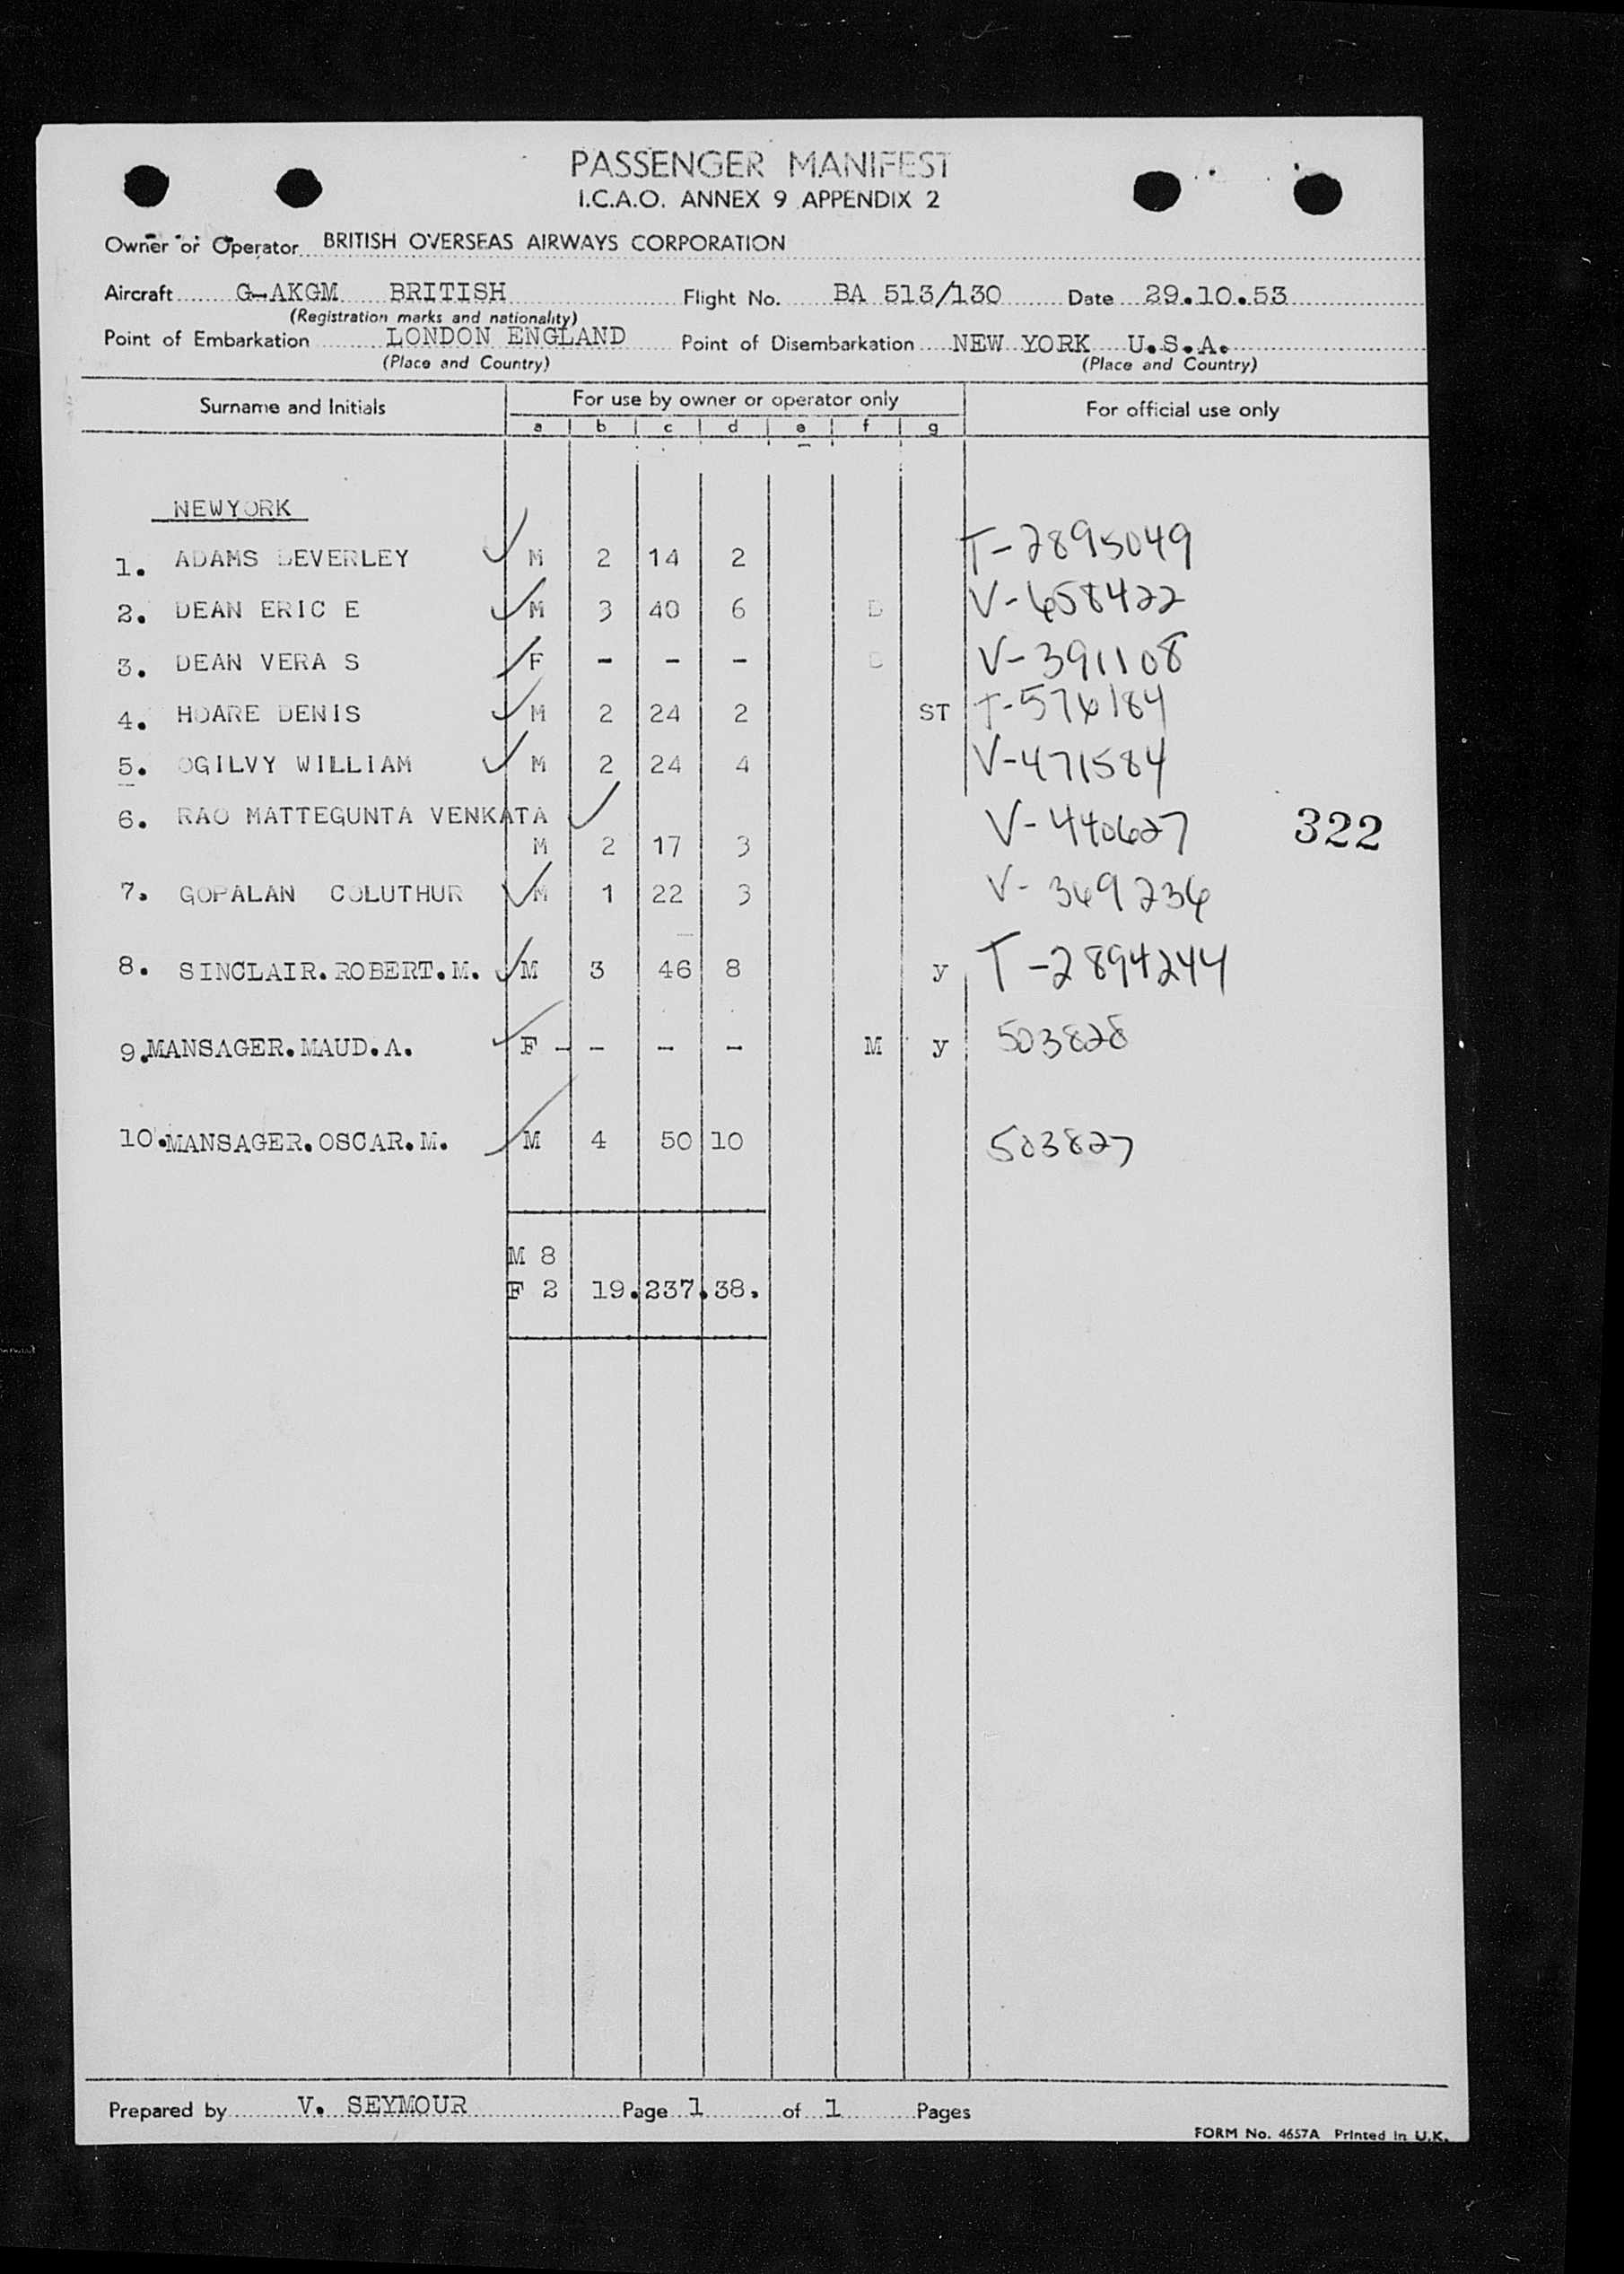 PASSENGER MANIFEST
I.C.A.O. ANNEX 9 APPENDIX 2
Owner or Operator BRITISH OVERSEAS AIRWAYS CORPORATION
Aircraft G-AKGM BRITISH Flight No. BA 513/130 Date 29.10.53
(Registration marks and nationality)
Point of Embarkation LONDON ENGLAND Point of Disembarkation NEW YORK U.S.A.
(Place and Country) (Place and Country)
Surname and Initials For use by owner or operator only For official use only
a b c d e f g
NEWYORK
1. ADAMS BEVERLEY M 2 14 2 T-2895049
2. DEAN ERIC E M 3 40 6 D V-658422
3. DEAN VERA S F - - - D V-391108
4. HOARE DENIS M 2 24 2 ST T-576184
5. OGILVY WILLIAM M 2 24 4 V-471584
6. RAO MATTEGUNTA VENKATA V-440627 322
M 2 17 3
7. GOPALAN COLUTHUR M 1 22 3 V-369236
8. SINCLAIR.ROBERT.M. M 3 46 8 y T-2894244
9.MANSAGER.MAUD.A. F - - - - M y 503828
10.MANSAGER.OSCAR.M. M 4 50 10 503827
M 8
F 2 19.237.38.
Prepared by V. SEYMOUR Page 1 of 1 Pages
FORM No. 4657A Printed in U.K.